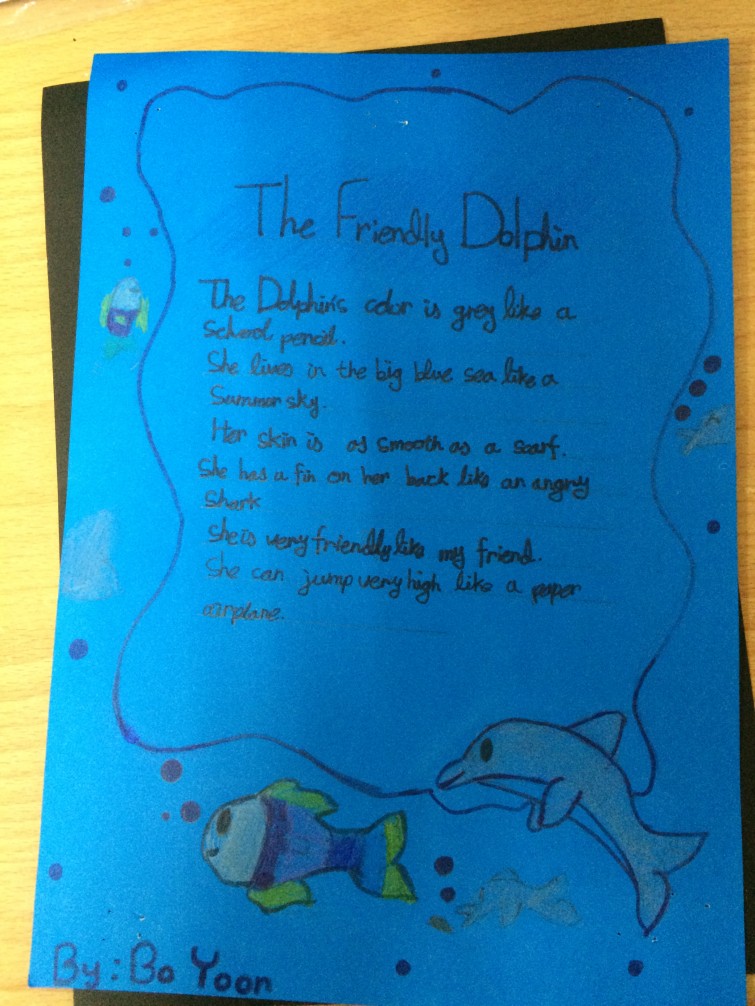 The Friendly Dolphin
The Dolphin's color is grey like a
School pencil.
She lives in the big blue sea like a
Summer sky.
Her skin is as smooth as a scarf.
She has a fin on her back like an angry
Shark
She is very friendly like my friend.
She can jump very high like a paper
airplane.
By: Bo Yoon